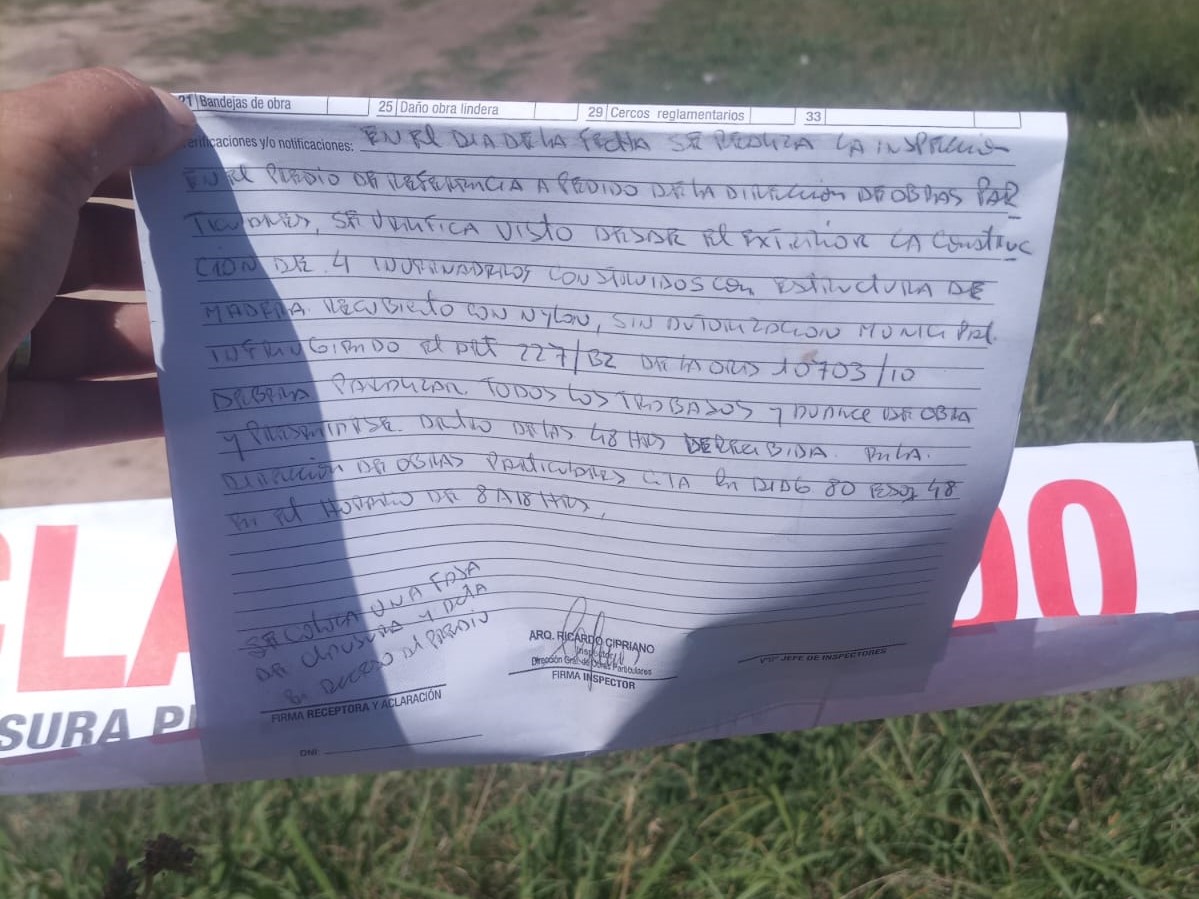 21 Bandejas de obra 25 Daño obra lindera 29 Cercos reglamentarios 33
erificaciones y/o notificaciones: EN El DIA DE LA FECHA SE REALIZA LA INSPECCION
EN El PREDIO DE REFERENCIA A PEDIDO DE LA DIRECCION DE OBRAS PAR
TICULARES, SE VERIFICA VISTO DESDE El EXTERIOR LA CONSTRUC
CION DE 4 INVERNADEROS CONSTRUIDOS CON ESTRUCTURA DE
MADERA RECUBIERTO CON NYLON, SIN AUTORIZACION MUNICIPAL.
INFRINGIENDO El ART 227/B2 DE LA ORD 10703/10
DEBERA PARALIZAR TODOS LOS TRABAJOS Y AVANCE DE OBRA
Y PRESENTARSE DENTRO DE LAS 48 HRS DE RECIBIDA EN LA
DIRECCION DE OBRAS PARTICULARES CITA EN DIAG 80 ESQ 48
EN El HORARIO DE 8 A 18 HRS,
SE COLOCA UNA FAJA
DE CLAUSURA Y
ACCESO AL PREDIO
FIRMA RECEPTORA Y ACLARACIÓN
DNI:
ARQ. RICARDO CIPRIANO
Inspector
Dirección Gral de Obras Particulares
FIRMA INSPECTOR
Vº Bº JEFE DE INSPECTORES
CLA
DO
SURA P